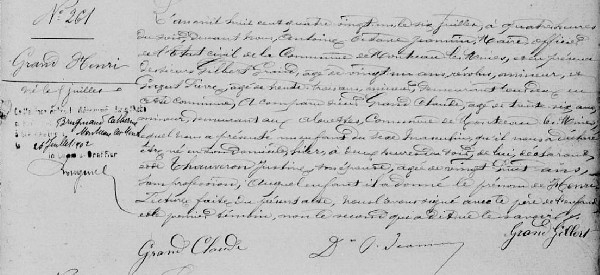 N° 261
Grand Henri
né le 5 juillet
L'an mil huit cent quatre vingt un, le six juillet, à quatre heures
du soir, devant nous, Antoine Octave Jeannin, Maire, officier
de l'état civil de la Commune de Montceau les Mines, et en présence
des sieurs Gilbert Grand, âgé de vingt un ans, révolus, mineur, et
âgé de trente trois ans, mineur, demeurant tous deux en
cette commune, A comparu sieur Grand Claude, âgé de trente six ans,
mineur, demeurant aux Alouettes, Commune de Montceau les Mines,
lequel nous a présenté un enfant du sexe masculin qu'il nous a déclaré
être né en son domicile, hier, à deux heures du soir, de lui, déclarant,
et de Thauveron Justine, son épouse, âgée de vingt huit ans,
sans profession, Auquel enfant il a donné le prénom de Henri.
Lecture faite du présent acte, nous l'avons signé avec le père de l'enfant
et le premier témoin, non le second qui a dit ne le savoir.
26 Juillet 1902
Grand Gilbert
Grand Claude
Dr O. Jeannin